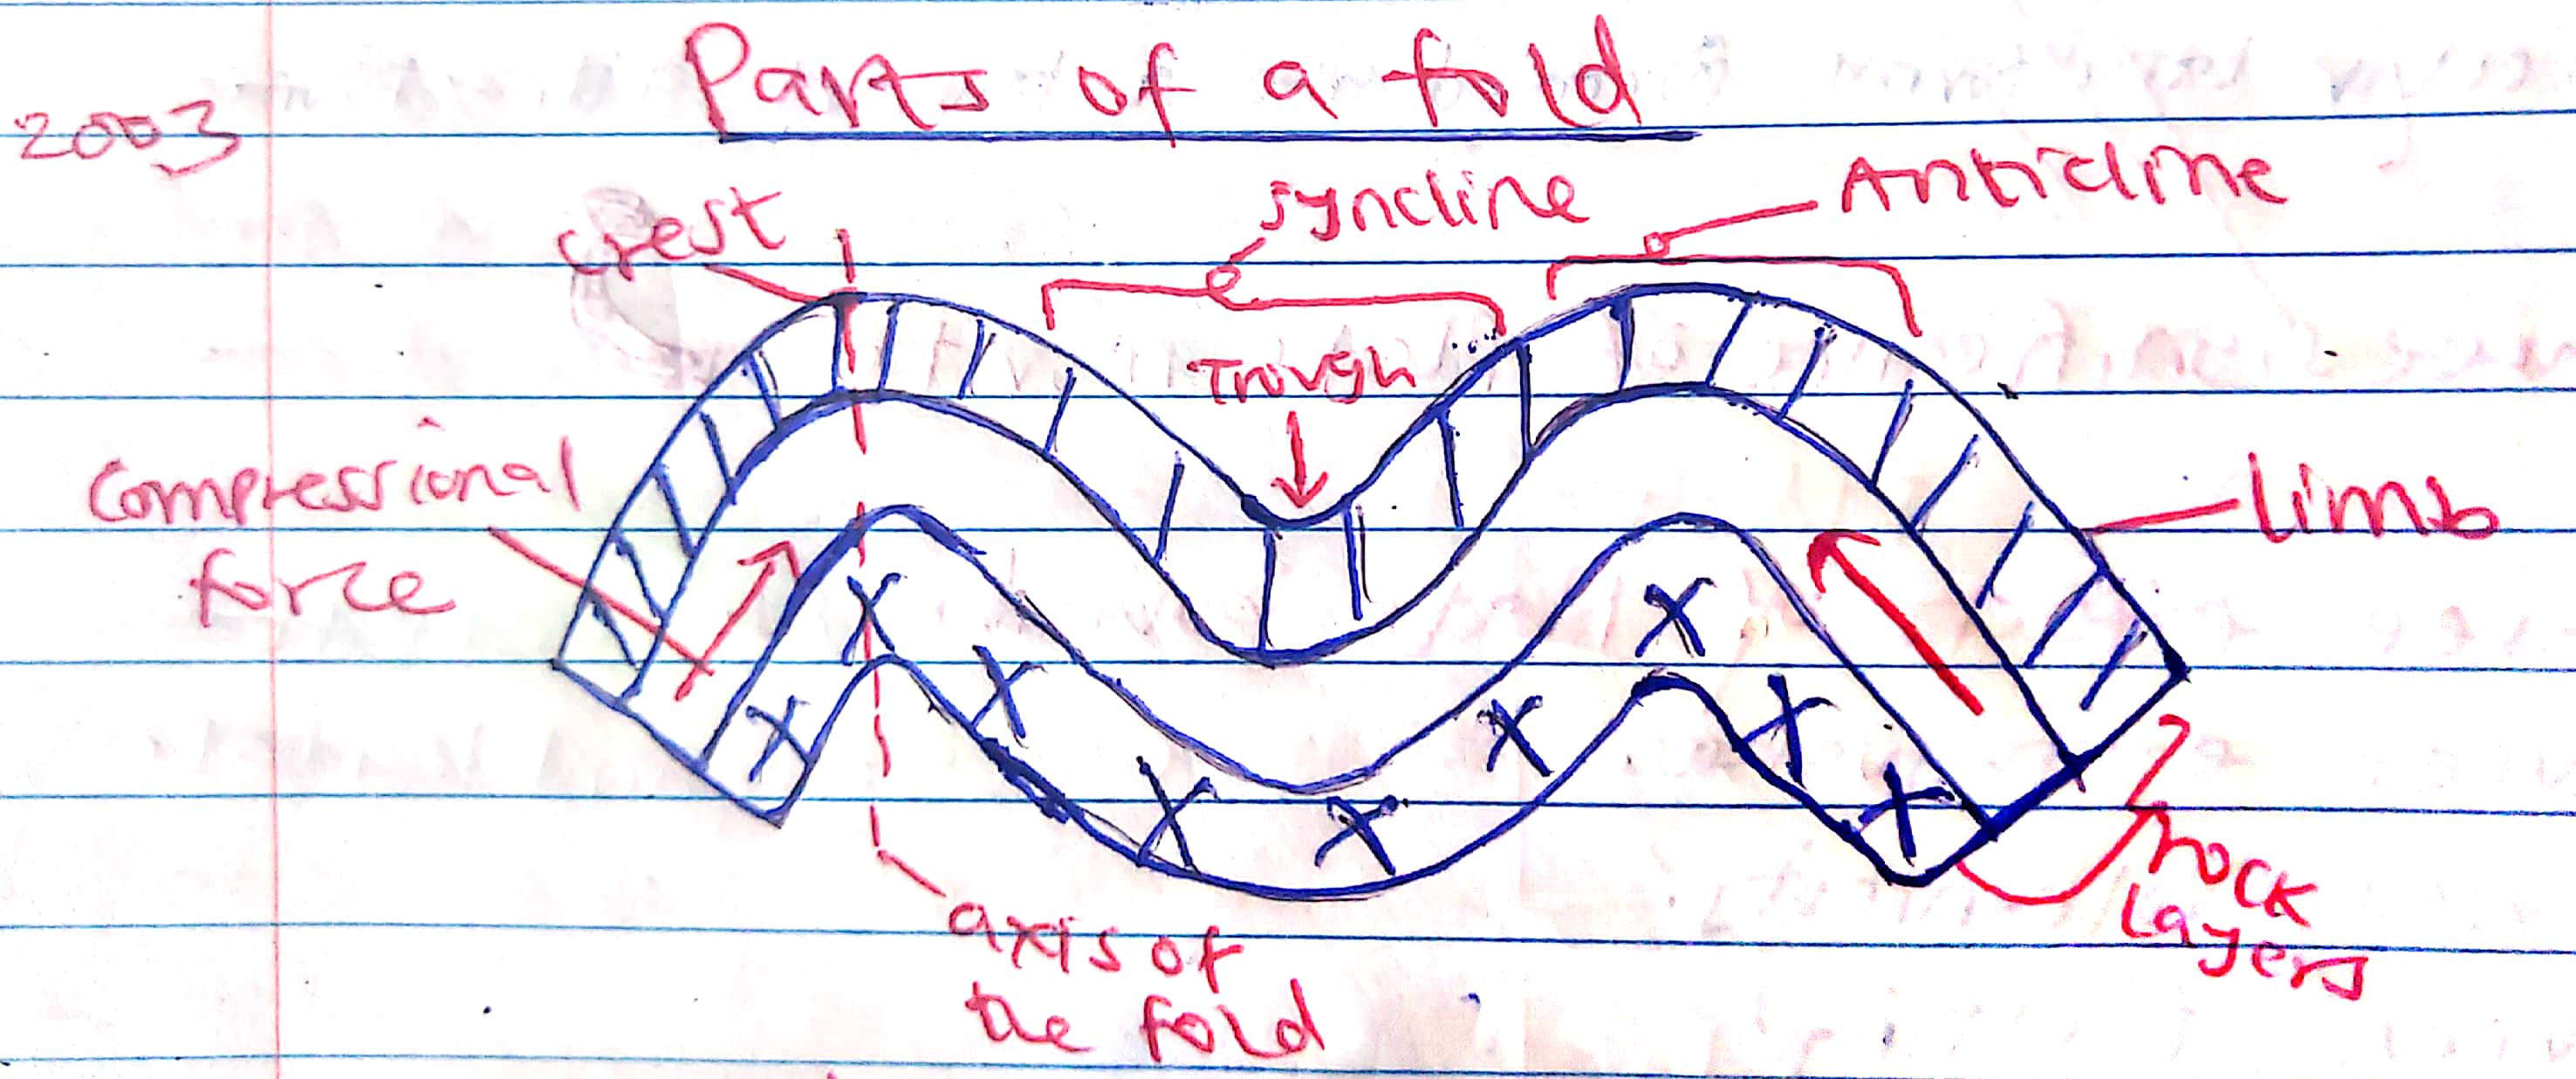 Parts of a fold
2003
crest
syncline
Anticline
Trough
Compressional
force
limb
rock
layers
axis of
the fold